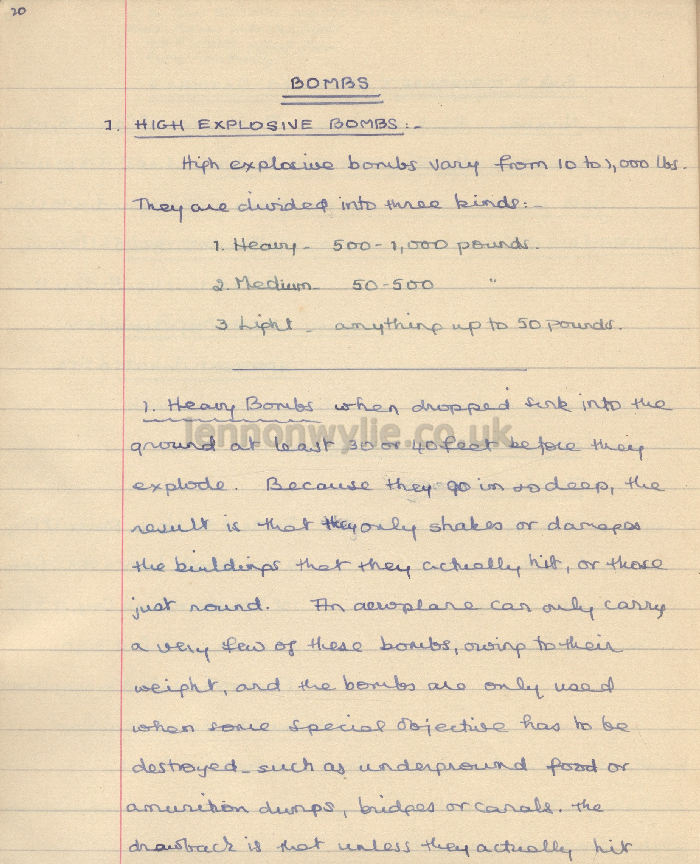 20
BOMBS
1. HIGH EXPLOSIVE BOMBS:-
High explosive bombs vary from 10 to 1,000 lbs.
They are divided into three kinds:-
1. Heavy - 500-1,000 pounds.
2. Medium - 50-500 "
3 Light - anything up to 50 pounds.
1. Heavy Bombs when dropped sink into the
lennonwylie.co.uk
ground at least 30 or 40 feet before they
explode. Because they go in so deep, the
result is that they only shakes or damages
the buildings that they actually hit, or those
just round. An aeroplane can only carry
a very few of these bombs, owing to their
weight, and the bombs are only used
when some special objective has to be
destroyed - such as underground food or
amunition dumps, bridges or canals. the
drawback is that unless they actually hit